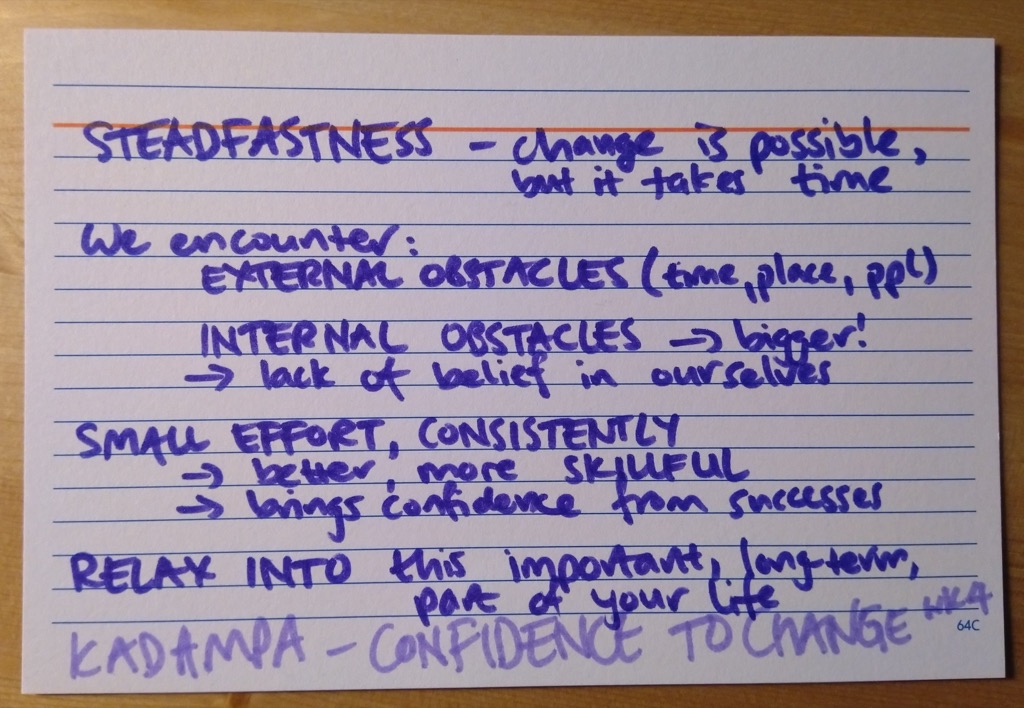 STEADFASTNESS - change is possible,
but it takes time
We encounter:
EXTERNAL OBSTACLES (time, place, ppl)
INTERNAL OBSTACLES → bigger!
→ lack of belief in ourselves
SMALL EFFORT, CONSISTENTLY
→ better, more SKILLFUL
→ brings confidence from successes
RELAX INTO this important, long-term,
part of your life
KADAMPA - CONFIDENCE TO CHANGE WK4
64C